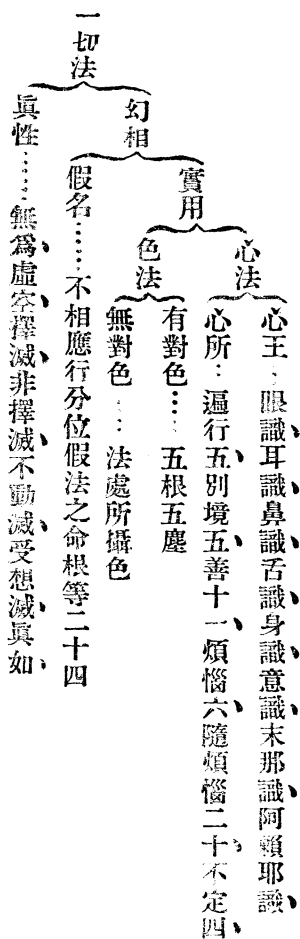 一切法
幻相
實用
心法
心王…眼識、耳識、鼻識、舌識、身識、意識、末那識、阿賴耶識、
心所…遍行五、別境五、善十一、煩惱六、隨煩惱二十、不定四、
色法
有對色……五根五塵
無對色……法處所攝色
假名……不相應行分位假法之命根等二十四
眞性……無爲虛空、擇滅、非擇滅、不動滅、受想滅、眞如、